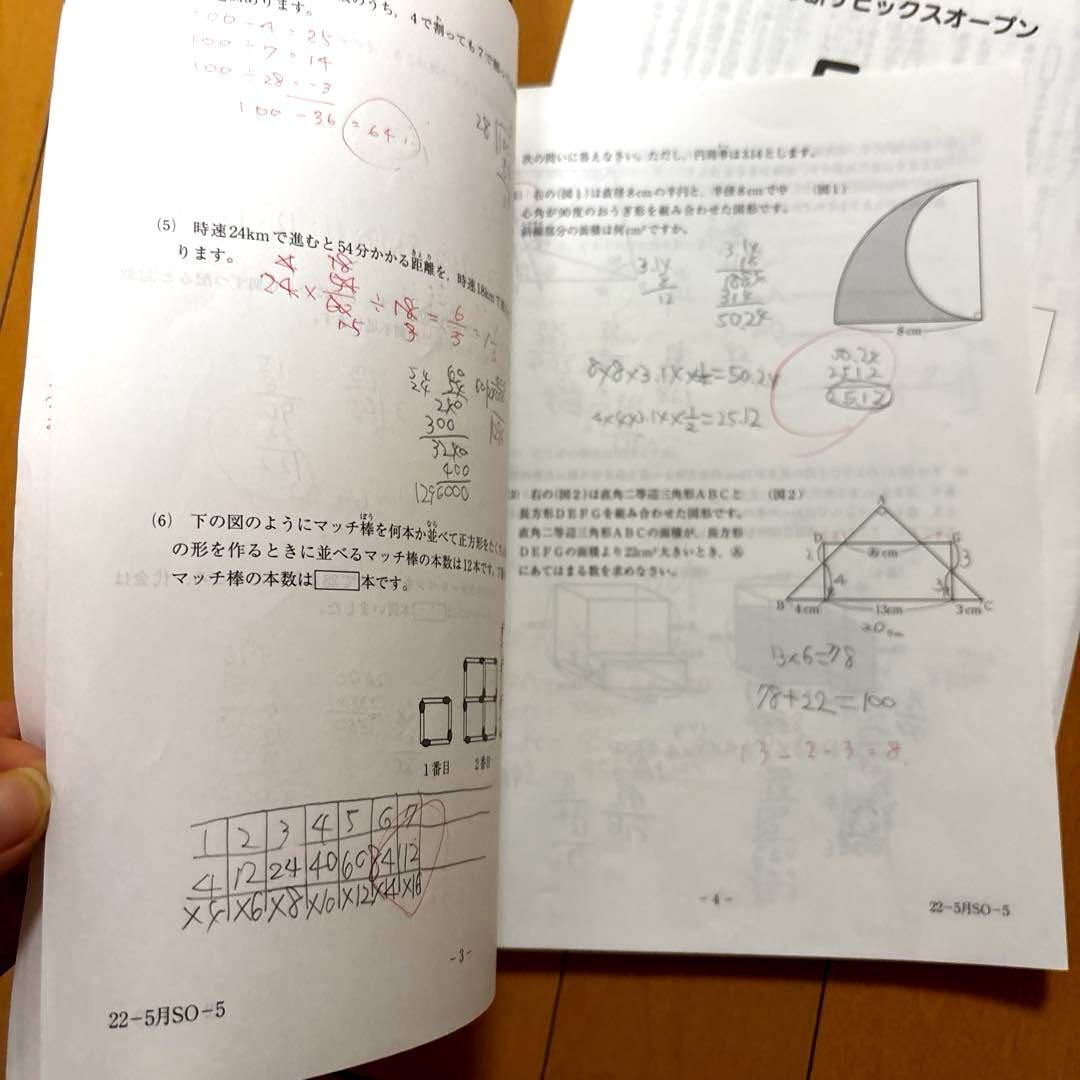 のうち，4で割っても7で
あります。
100÷4=25
100÷7=14
100÷28=3
100-36=64
28
(5) 時速24kmで進むと54分かかる距離を，時速18kmで
ります。
(6) 下の図のようにマッチ棒を何本か並べて正方形をたく
の形を作るときに並べるマッチ棒の本数は12本です。
マッチ棒の本数は 本です。
300
400
1296000
1番目
2番目
1 2 3 4 5 6 7
4 12 24 40 60 84 112
×4 ×6 ×8 ×10 ×12 ×14 ×16
-3-
22-5月SO-5
ピックスオープン
次の問いに答えなさい。ただし，円周率は3.14とします。
右の(図1)は直径8cmの半円と，半径8cmで中
(図1)
心角が90度のおうぎ形を組み合わせた図形です。
斜線部分の面積は何cm²ですか。
8cm
3.14
50.24
8×8×3.14×¼=50.24
4×4×3.14×½=25.12
50.24
25.12
25.12
右の(図2)は直角二等辺三角形ABCと
(図2)
長方形DEFGを組み合わせた図形です。
直角二等辺三角形ABCの面積が，長方形
DEFGの面積より22cm²大きいとき，あ
にあてはまる数を求めなさい。
A
D
G
あcm
2
3
4
B
4cm
13cm
3cm
C
20cm
13×6=78
78+22=100
13-2-3=8
-4-
22-5月SO-5